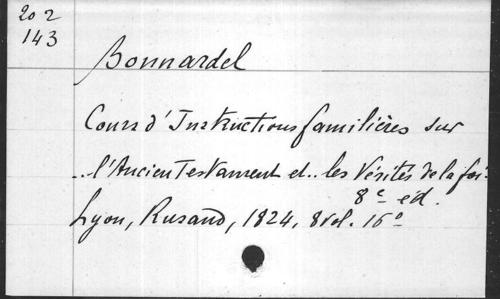 202
143
Bonnardel
Cours d'Instructions familières sur
..l'Ancien Testament et..les Vérités de la foi.
8e éd.
Lyon, Rusand, 1824, 8 vol. 16°